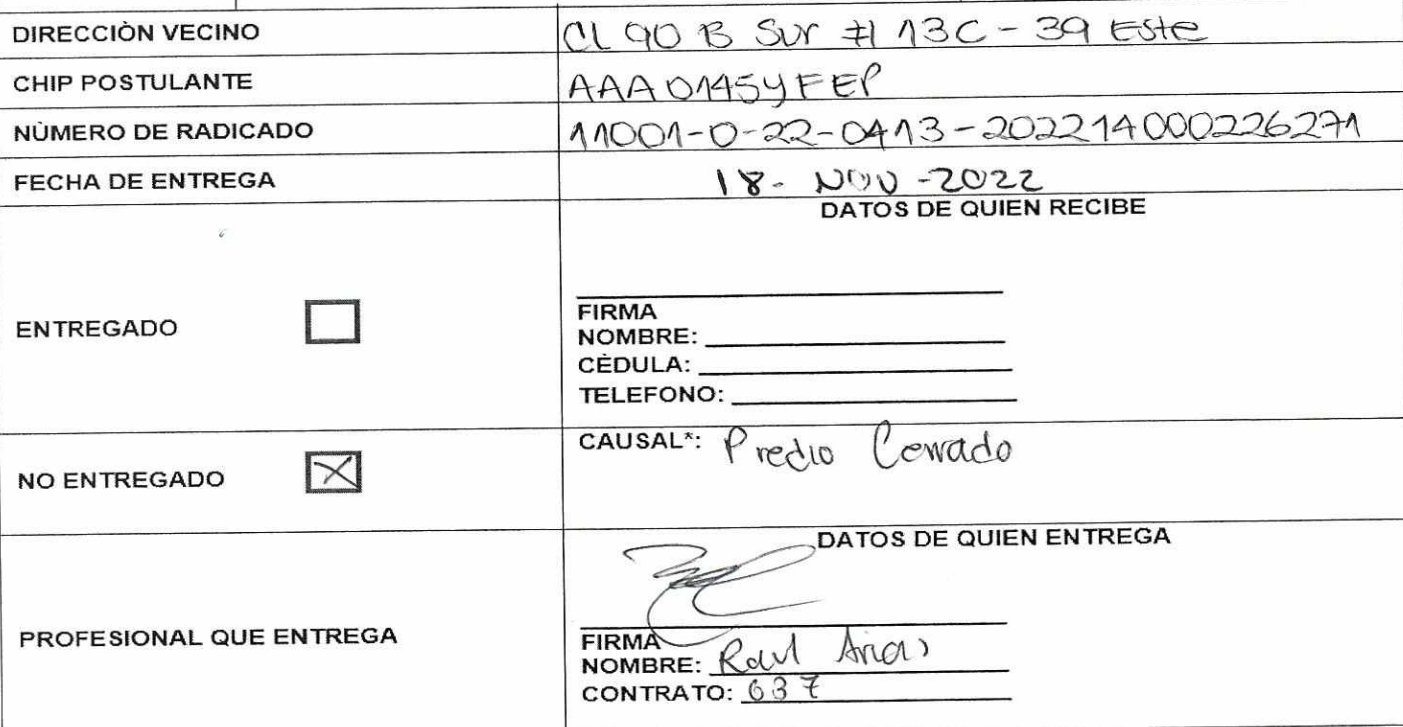 DIRECCIÒN VECINO CL 90 B Sur # 13C - 39 Este
CHIP POSTULANTE AAA0145YFEP
NÙMERO DE RADICADO 11001-0-22-0413-202214000226271
FECHA DE ENTREGA 18- NOV -2022
DATOS DE QUIEN RECIBE
ENTREGADO
FIRMA
NOMBRE:
CÈDULA:
TELEFONO:
NO ENTREGADO X CAUSAL*: Predio Cerrado
DATOS DE QUIEN ENTREGA
PROFESIONAL QUE ENTREGA
FIRMA
NOMBRE: Raul Arias
CONTRATO: 637